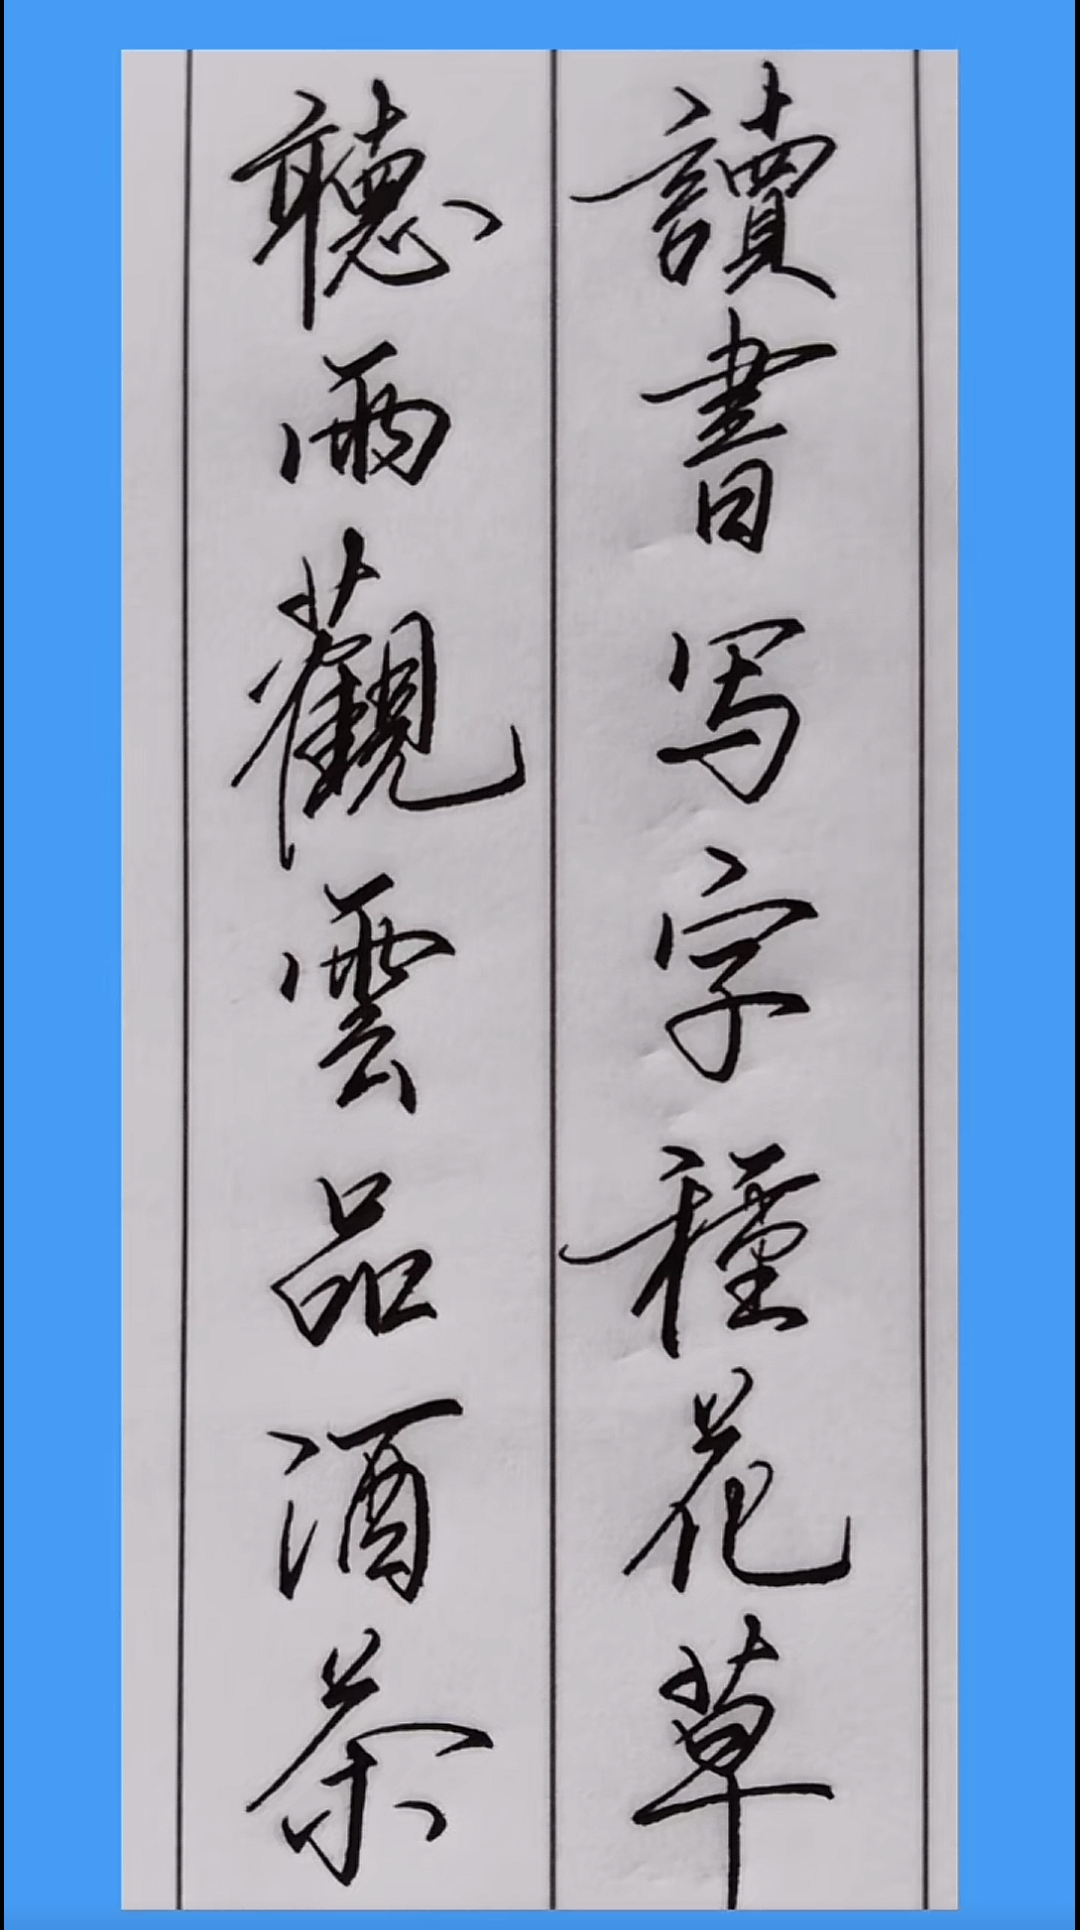 讀書写字種花草
聽雨觀雲品酒茶